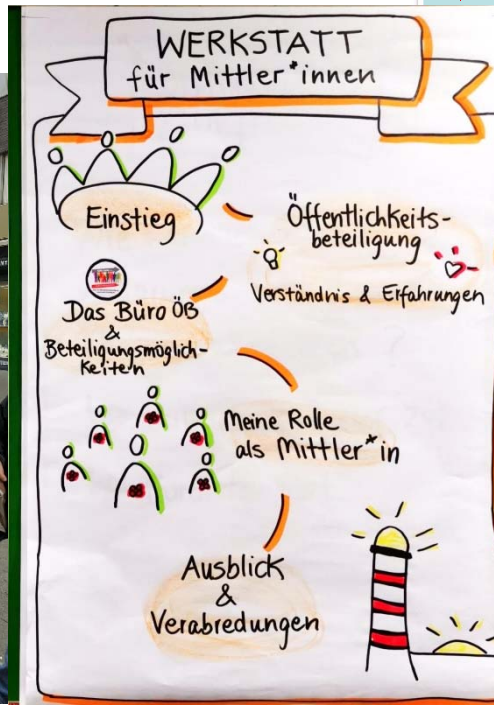 WERKSTATT
für Mittler*innen
Einstieg
Öffentlichkeits-
beteiligung
Verständnis & Erfahrungen
Das Büro ÖB
&
Beteiligungsmöglich-
keiten
Meine Rolle
als Mittler*in
Ausblick
&
Verabredungen